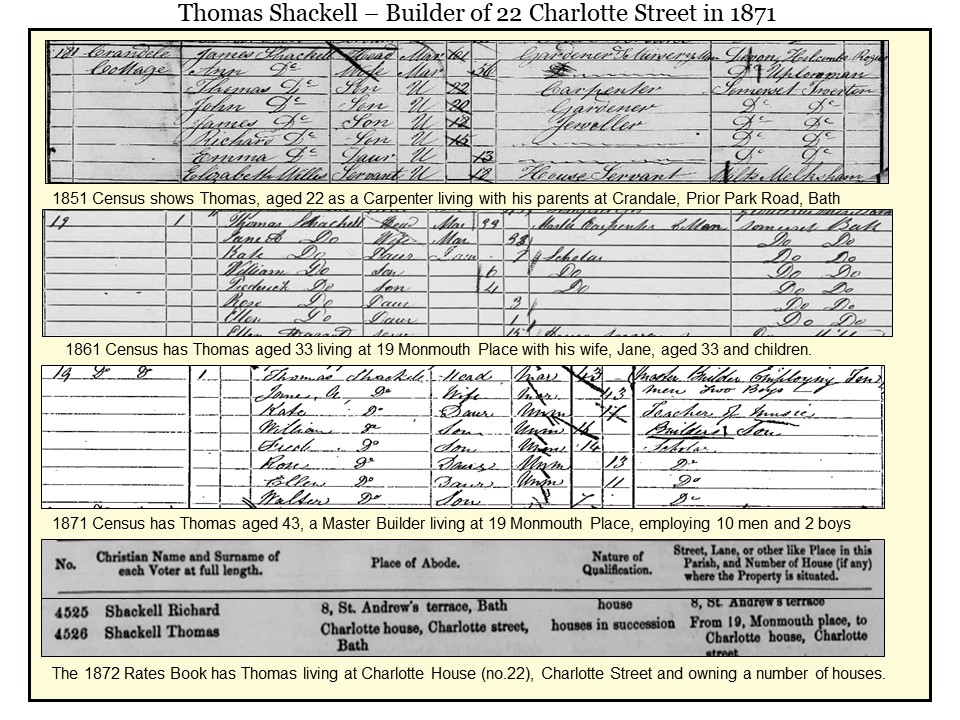 Thomas Shackell – Builder of 22 Charlotte Street in 1871
181 Crandele James Shackell Head Mar 61 Gardener Devon Holcombe Rogus
Cottage Ann Do Wife Mar 56 Do Uplowman
Thomas Do Son U 22 Carpenter Somerset
John Do Son U 20 Gardener Do Do
James Do Son U Jeweller Do Do
Richard Do Son U 15 Do Do
Emma Do Daur U 13 Do Do
Elizabeth Servant U House Servant Wilts Melksham
1851 Census shows Thomas, aged 22 as a Carpenter living with his parents at Crandale, Prior Park Road, Bath
19 1 Thomas Shackell Head Mar 33 Master Carpenter Somerset Bath
Jane A Do Wife Mar 33 Do Do
Kate Do Daur 7 Scholar Do Do
William Do Son 6 Do Do Do
Frederick Do Son 4 Do Do Do
Rose Do Daur 3 Do Do
Ellen Do Daur 1 Do Do
Ellen 15
1861 Census has Thomas aged 33 living at 19 Monmouth Place with his wife, Jane, aged 33 and children.
19 Do Do 1 Thomas Shackell Head Mar 43 Master Builder Employing Ten
James A, Do Wife Mar 43 men Two Boys
Kate Do Daur Unm 17 Teacher of music
William Do Son Unm 16 Builder's Son
Fredk. Do Son Unm 14 Scholar
Rose Do Daur Unm 13 Do
Ellen Do Daur Unm 11 Do
Walter Do Son 7 Do
1871 Census has Thomas aged 43, a Master Builder living at 19 Monmouth Place, employing 10 men and 2 boys
No. Christian Name and Surname of each Voter at full length. Place of Abode. Nature of Qualification. Street, Lane, or other like Place in this Parish, and Number of House (if any) where the Property is situated.
4525 Shackell Richard 8, St. Andrew's terrace, Bath house 8, St. Andrew's terrace
4526 Shackell Thomas Charlotte house, Charlotte street, Bath houses in succession From 19, Monmouth place, to Charlotte house, Charlotte street
The 1872 Rates Book has Thomas living at Charlotte House (no.22), Charlotte Street and owning a number of houses.